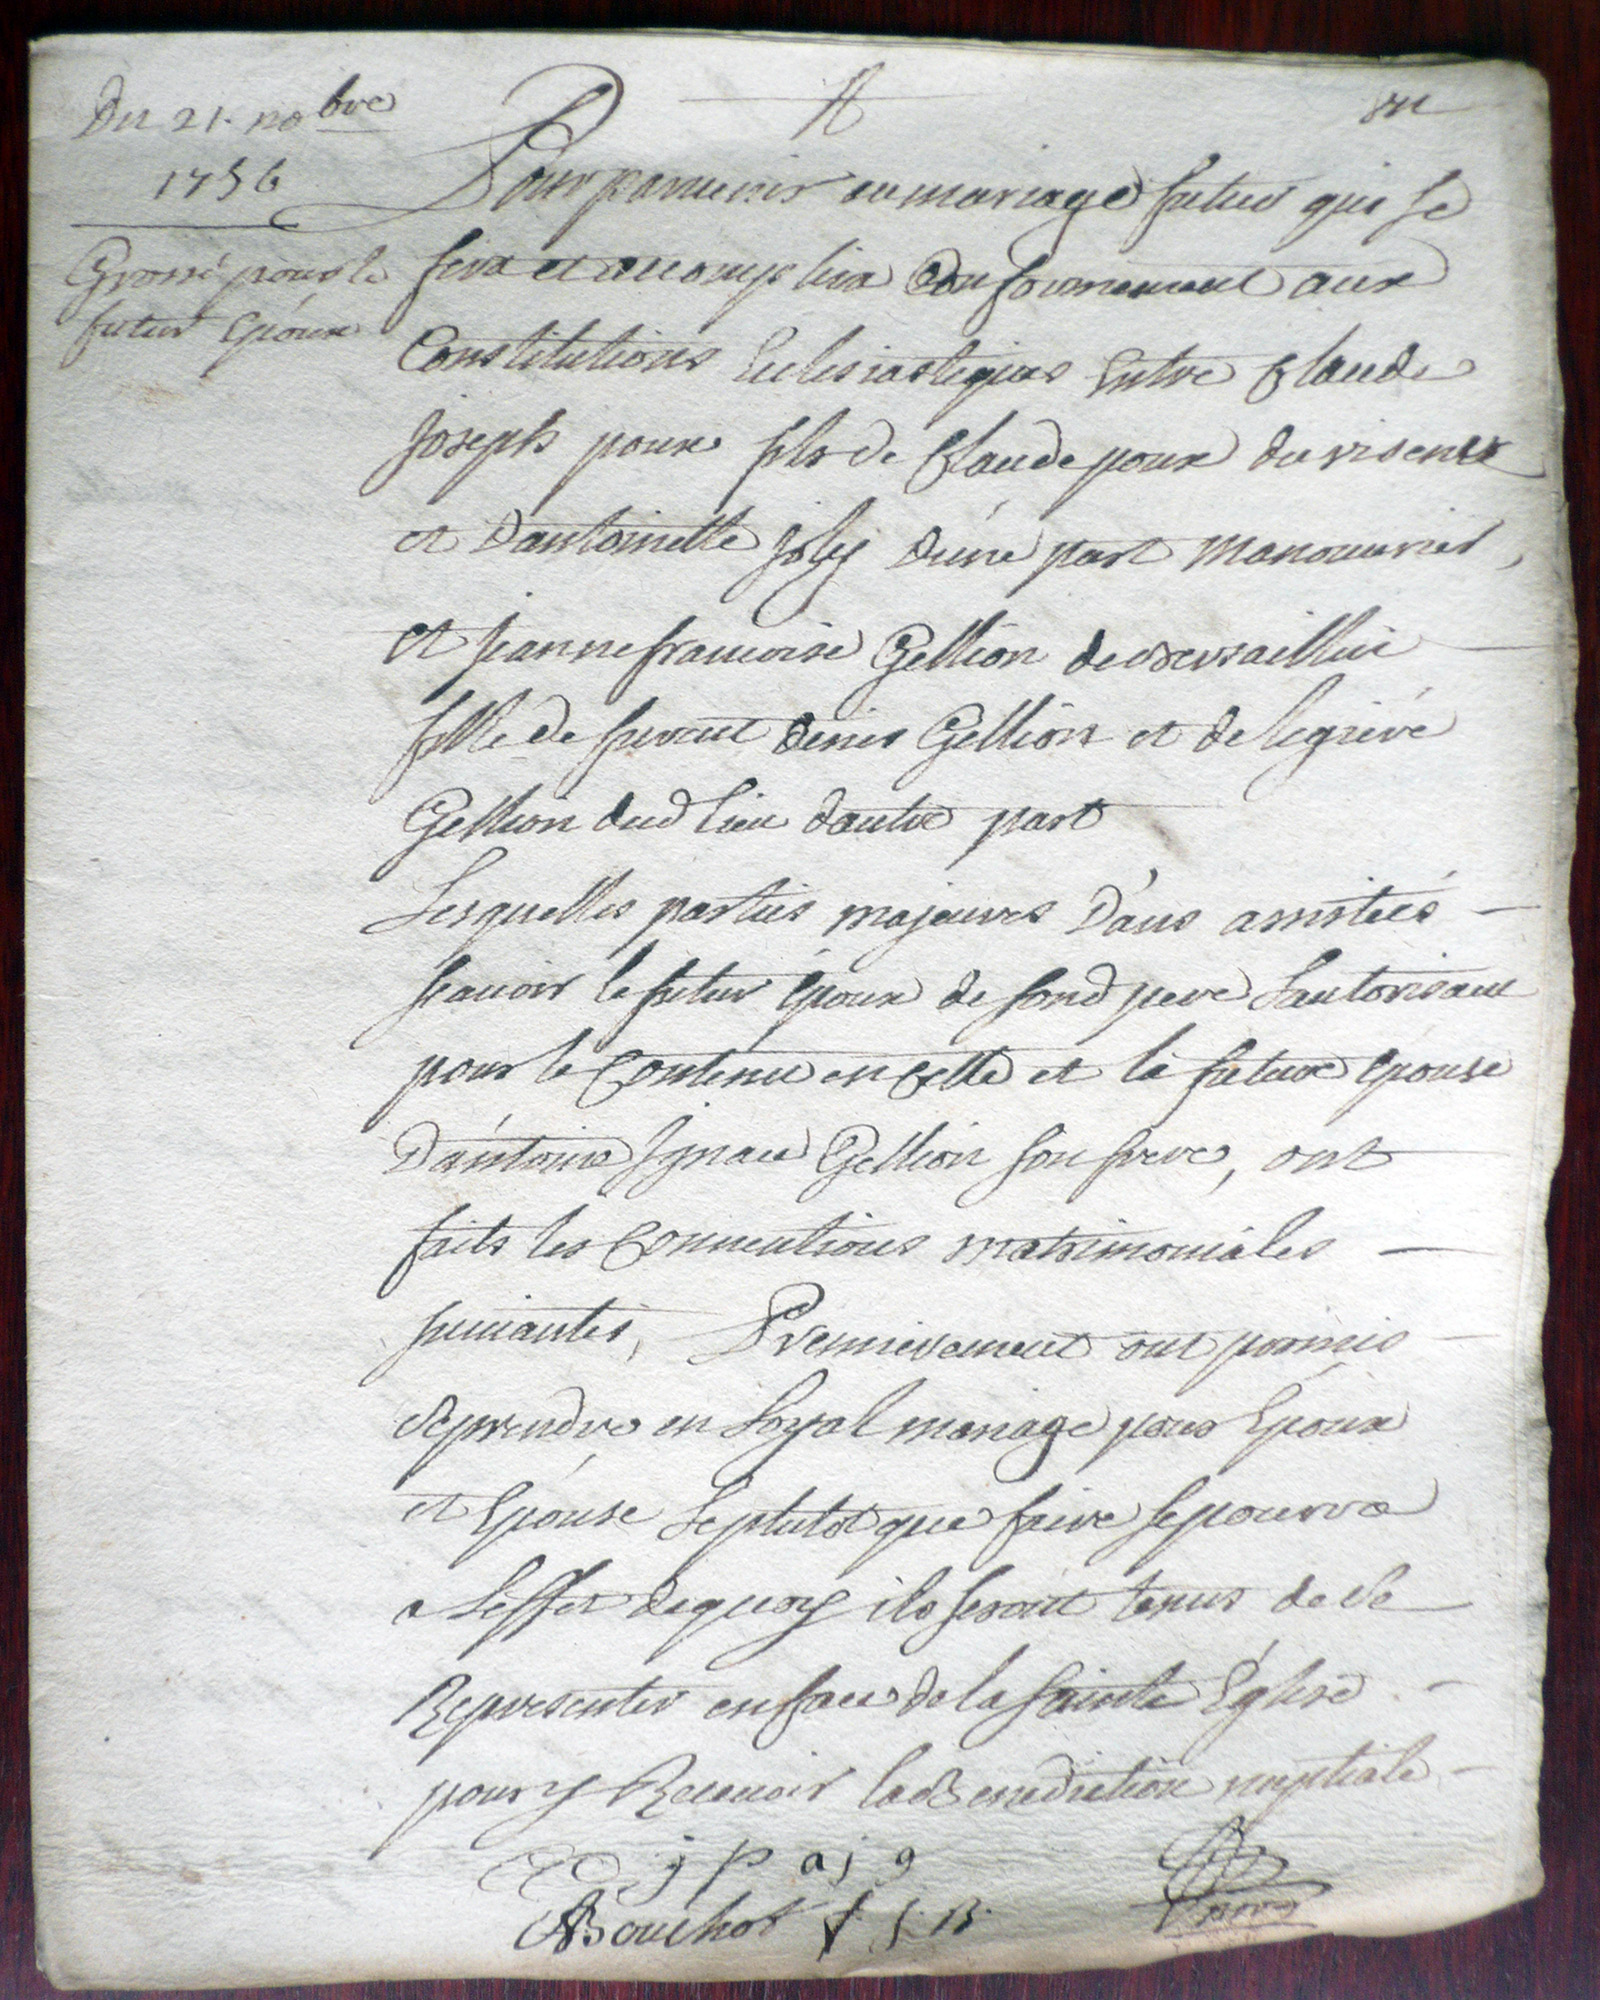 Du 21. nobre
1756
Grossé pour le
futur Epoux
Pour parvenir au mariage futur qui se
fera et accomplira Conformement aux
Constitutions Eclesiastiques Entre Claude
Joseph poux fils de Claude poux du viseney
et D'antoinette Joly d'une part manouvrier,
et jeanne francoise Gellion de versaillin
fille de furent denis Gellion et de
Gellion dud lieu dautre part
Lesquelles parties majeures D'ans assistées
scavoir le futur Epoux de sond pere Lautorisant
pour le Contenu en Cette et la future Epouse
D'antoine Ignace Gellion son frere, ont
faits les Conventions matrimoniales
suivantes, Premierement ont promis
se prendre en Loyal mariage pour Epoux
et Epouse Le plutot que faire se pourra
a Leffet de quoy ils seront tenus de se
Representer en face de la Sainte Eglise
pour y Recevoir la Benediction nuptiale
j p a j g
Bouchot J. B.